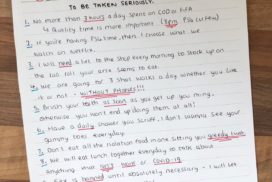 TO BE TAKEN SERIOUSLY.
1. No more than 3 hours a day spent on COD or FIFA
Quality time is more important! (8pm PS4 curfew)
2. If you're having PS4 time, then I choose what we
watch on Netflix.
3. I will need a lift to the shop every morning to stock up on
the loo roll your arse seems to eat.
4. We are going for 3 dog walks a day whether you like
it or not - WITHOUT PHONES!!!
5. Brush your teeth as soon as you get up you hang,
otherwise you wont end up doing them at all!
6. Have a daily shower you scruff, I don't wanna see your
gammy toes everyday.
7. Don't eat all the isolation food in one sitting you greedy
8. We will eat lunch together everyday to talk about
anything than or Covid-19
is banned until absolutely necessary - I will set